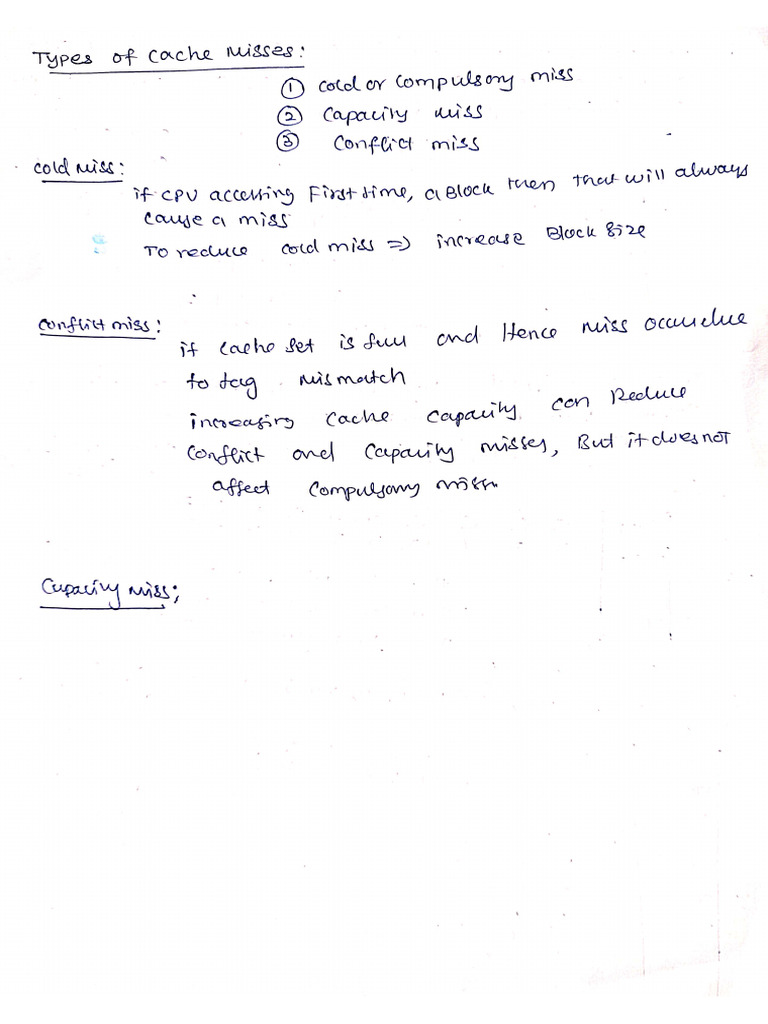 Types of cache Misses:
① cold or compulsory miss
② capacity miss
③ conflict miss
cold miss:
if CPU accessing First time, a Block then that will always
cause a miss
To reduce cold miss => increase Block size
conflict miss:
if cache set is full and Hence miss occur due
to tag mismatch
increasing cache capacity can Reduce
conflict and capacity misses, But it does not
affect compulsory miss
Capacity miss;